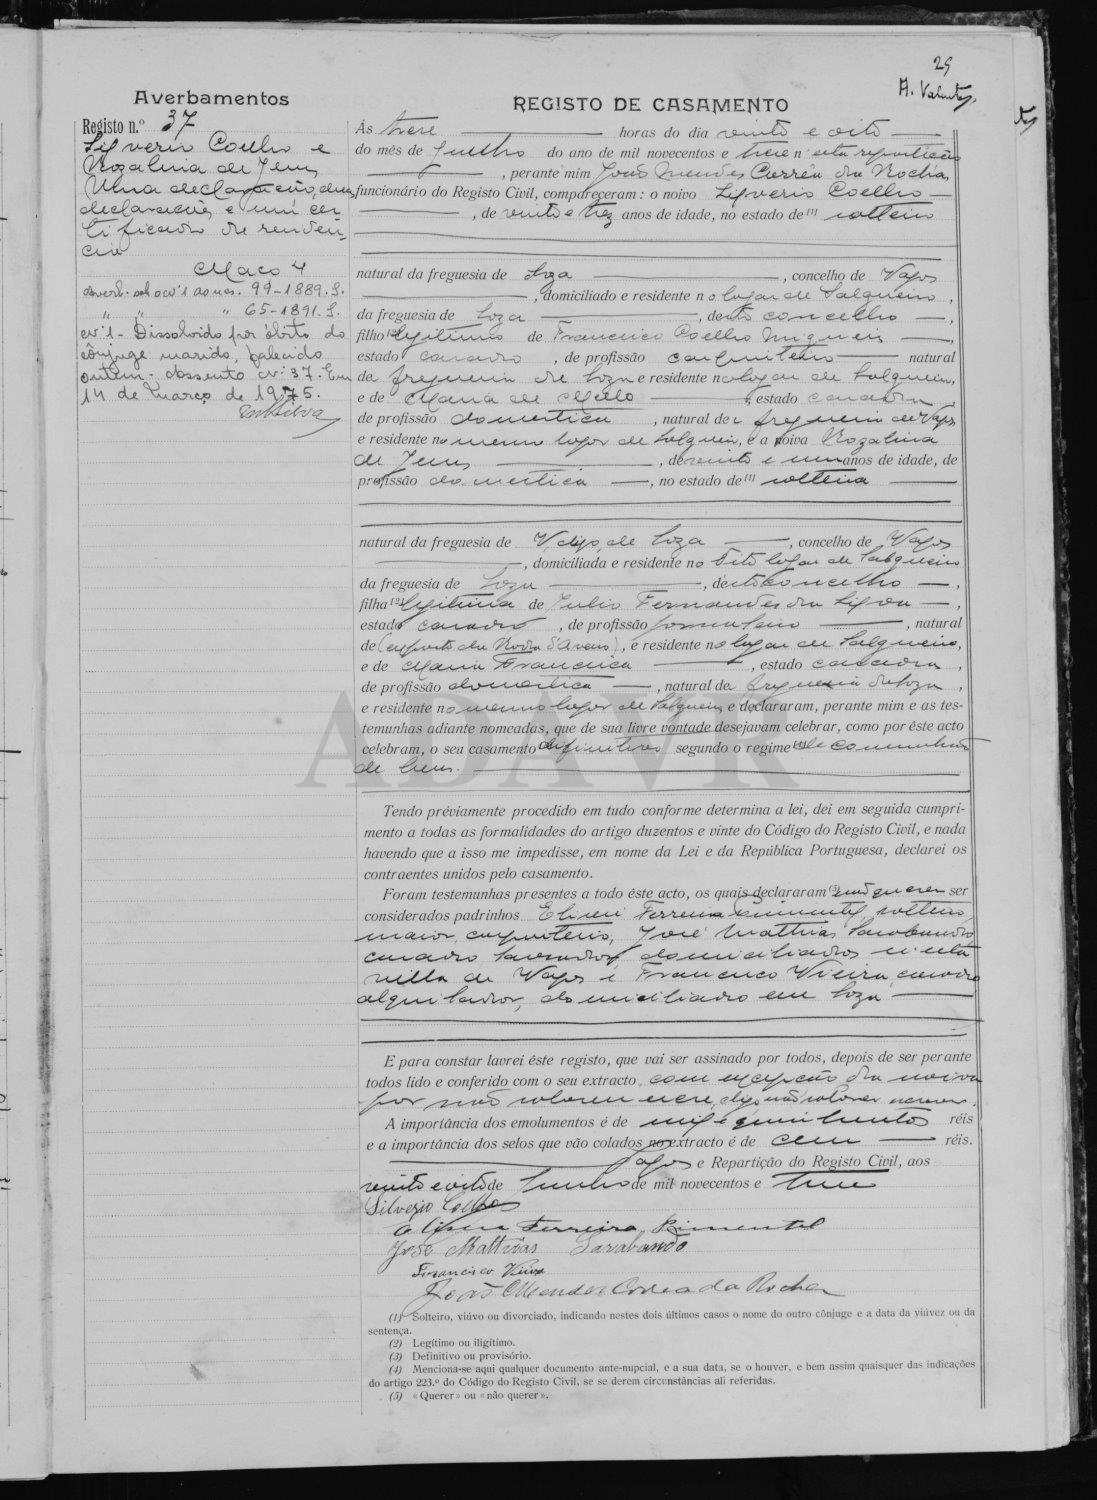 29
A. Valente
Averbamentos
REGISTO DE CASAMENTO
Registo n.º 37
Silverio Coelho e
Rozalina de Jesus
Uma declaração, duas
declarações e um cer-
tificado de residen-
cia
Maço 4
Averb. sob o nº 1 ao nas. 99-1889. S.
" " " 65-1891. S.
nº 1 - Dissolvido por óbito do
cônjuge marido, falecido
ontem - assento nº 37. Em
14 de Março de 1975.
Às treze horas do dia vinte e oito
do mês de Junho do ano de mil novecentos e treze n'esta repartição
, perante mim João Mendes Corrêa da Rocha,
funcionário do Registo Civil, compareceram: o noivo Silverio Coelho
, de vinte e trez anos de idade, no estado de (1) solteiro
natural da freguesia de Soza , concelho de Vagos
, domiciliado e residente no logar de Salgueiro,
da freguesia de Soza , deste concelho ,
filho (2) legitimo de Francisco Coelho Migueis ,
estado casado , de profissão carpinteiro natural
da freguesia de Soza e residente no logar de Salgueiro,
e de Maria de Mello , estado casada ,
de profissão domestica , natural da freguesia de Vagos
e residente no mesmo logar de Salgueiro, e a noiva Rozalina
de Jesus , de vinte e um anos de idade, de
profissão domestica , no estado de (1) solteira
natural da freguesia de Soza , concelho de Vagos
, domiciliada e residente no dito logar de Salgueiro
da freguesia de Soza , deste concelho ,
filha (2) legitima de Julio Fernandes da Silva ,
estado casado , de profissão jornaleiro , natural
de (exposto da Roda d'Aveiro), e residente no logar de Salgueiro,
e de Maria Francisca , estado casada ,
de profissão domestica , natural da freguesia de Soza ,
e residente no mesmo logar de Salgueiro e declararam, perante mim e as tes-
temunhas adiante nomeadas, que de sua livre vontade desejavam celebrar, como por êste acto
celebram, o seu casamento definitivo segundo o regime (4) de communhão
de bens.
Tendo préviamente procedido em tudo conforme determina a lei, dei em seguida cumpri-
mento a todas as formalidades do artigo duzentos e vinte do Código do Registo Civil, e nada
havendo que a isso me impedisse, em nome da Lei e da República Portuguesa, declarei os
contraentes unidos pelo casamento.
Foram testemunhas presentes a todo êste acto, os quais declararam (5) não querer ser
considerados padrinhos Ferreira Pimentel, solteiro,
maior, carpinteiro, José Mathias Sarabando
casado, lavrador, domiciliados n'esta
villa de Vagos e Francisco Vieira, casado
alquilador, domiciliado em Soza
E para constar lavrei êste registo, que vai ser assinado por todos, depois de ser perante
todos lido e conferido com o seu extracto, com excepção da noiva
por não saber escrever.
A importância dos emolumentos é de mil e quinhentos réis
e a importância dos selos que vão colados no extracto é de cem réis.
Vagos e Repartição do Registo Civil, aos
vinte e oito de Junho de mil novecentos e treze
Silverio Coelho
Ferreira Pimentel
José Mathias Sarabando
Francisco Vieira
João Mendes Correa da Rocha
(1) Solteiro, viúvo ou divorciado, indicando nestes dois últimos casos o nome do outro cônjuge e a data da viúvez ou da
sentença.
(2) Legítimo ou iligítimo.
(3) Definitivo ou provisório.
(4) Menciona-se aqui qualquer documento ante-nupcial, e a sua data, se o houver, e bem assim quaisquer das indicações
do artigo 223.º do Código do Registo Civil, se se derem circunstâncias ali referidas.
(5) «Querer» ou «não querer».
ADAVR